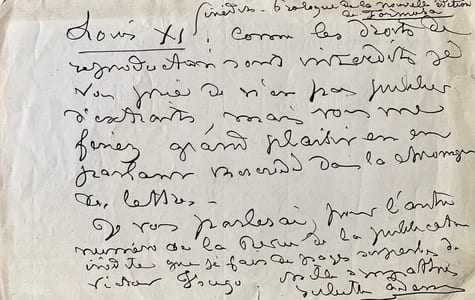 (inédit - Prologue de la nouvelle édition
de Formosa
Louis XI. Comme les droits de
reproduction sont interdits je
vous prie de n'en pas publier
d'extraits, mais vous me
feriez grand plaisir en en
parlant mercredi dans la chronique
des lettres.
Je vous parlerai, pour l'autre
numéro de la Revue de la publication
inédite que je fais de pages superbes de
Victor Hugo. Mille sympathies
Juliette Adam